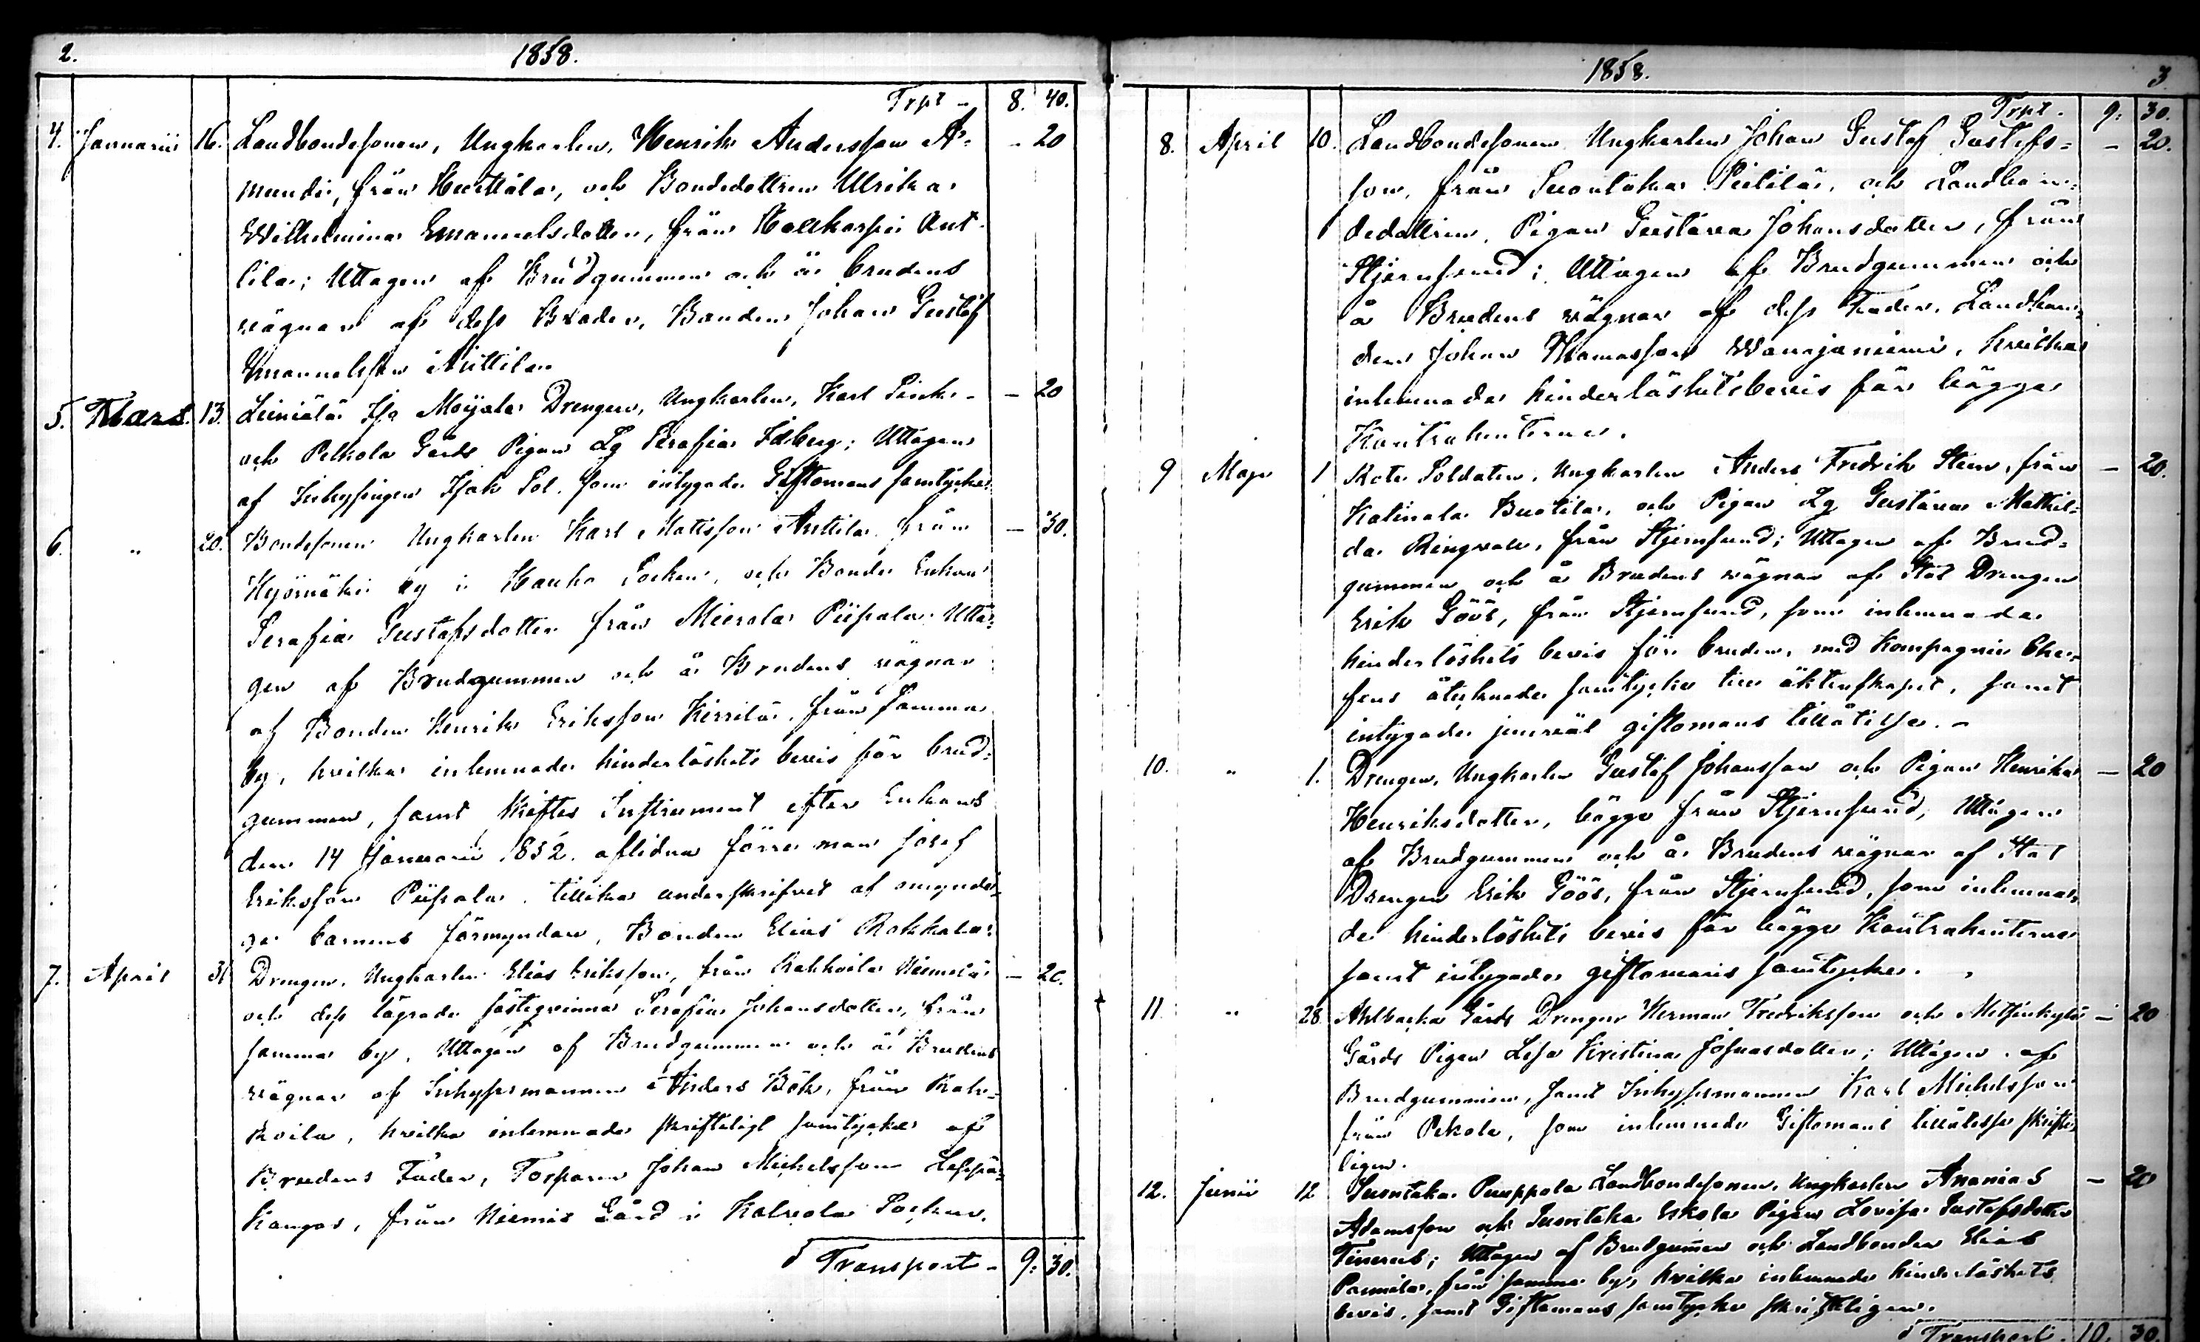 2. 1858.
Trpt - 8. 40.
4. Januarii 16. Landbondesonen, Ungkarlen, Henrik Andersson A= - 20
mundi, från Huittula, och Bondedottren Ulrika
Wilhelmina Emanuelsdotter, från Hallkorpi Ant
tila; Uttagen af Brudgummen och å brudens
vägnar af dess Broder, Bonden Johan Gustaf
Emanuelsson Anttila.
5. Mars. 13. Leiniälä Isa Moijola Drengen, Ungkarlen, Karl - 20
och Pelkola Gårds Pigan Lg Serafia Idberg; Uttagen
af Inhysingen Isak Sol. som intygade Giftomans samtycke.
6. " 20. Bondesonen Ungkarlen Karl Mattsson Anttila från - 30.
by i Hauho Socken, och Bonde Enkan
Serafia Gustafsdotter från Mierola Piipola. Utta=
gen af Brudgummen och å Brudens vägnar
af Bonden Henrik Eriksson Kirrilä, från samma
by, hvilka inlemnade hinderlöshets bevis för brud=
gummen, samt Skiftes Instrument efter Enkans
den 14 Januarii 1852. aflidna förre man Josef
Eriksson Piipola, tillika underskrifvet af omyndi=
ga barnens förmyndare, Bonden Elias Rokkala.
7. April 31 Drengen, Ungkarlen Elias Eriksson, från Rahkoila Niemelä - 20.
och dess lägrade fästeqvinna Serafia Johansdotter, från
samma by, Uttagen af Brudgummen och å Brudens
vägnar af Inhysesmannen Anders Bök, från Rah=
koila, hvilka inlemnade skriftligt samtycke af
Brudens Fader, Torparen Johan Michelsson Leppä=
kangas, från Niemis Gård i Kalvola Socken.
Transport - 9. 30.
1858. 3
Trpt. 9. 30.
8. April 10. Landbondesonen Ungkarlen Johan Gustaf Gustafs= - 20.
son, från Suontaka Pietilä, och Landbon=
dedottren, Pigan Gustava Johansdotter, från
Stjernsund; Uttagen af Brudgummen och
å Brudens vägnar af dess Fader, Landbon=
den Johan Thomasson Wanajaniemi, hvilka
inlemnade hinderlöshetsbevis för bägge
Kontrahenterne.
9 Maji 1 Rote Soldaten, Ungkarlen Anders Fredrik Sten, från - 20.
Katinala Buotila, och Pigan Lg Gustava Mathil=
da Ringvall, från Stjernsund; Uttagen af Brud=
gummen och å Brudens vägnar af Stat Drengen
Erik Göös, från Stjernsund, som inlemnade
hinderlöshets bevis för bruden, med Kompagnie Che=
fens åtecknade samtycke till äktenskapet, samt
intygade jemväl giftomans tillåtelse. -
10. " 1. Drengen, Ungkarlen Gustaf Johansson och Pigan Henrika - 20
Henriksdotter, bägge från Stjernsund; Uttagen
af Brudgummen och å Brudens vägnar af Stat
Drengen Erik Göös, från Stjernsund, som inlemna=
de hinderlöshets bevis för bägge Kontrahenterna
samt intygade giftomans samtycke.
11 " 28 Ahlbacka Gårds Drengen Herman Fredriksson och Metsänkylä - 20
Gårds Pigan Lisa Kristina Josuasdotter; Uttagen af
Brudgummen, samt Inhysesmannen Karl Michelsson
från Pekola, som inlemnade Giftomans tillåtelse skrift=
ligen.
12. Junii 12 Suontaka Puuppola Landbondesonen, Ungkarlen Ananias - 20
Adamsson och Suontaka Eskola Pigan Lovisa Gustafsdotter
; Uttagen af Brudgummen och Landbonden Elias
från samma by, hvilka inlemnade hinderlöshets
bevis, samt Giftomans samtycke skriftligen.
Transport. 10. 30